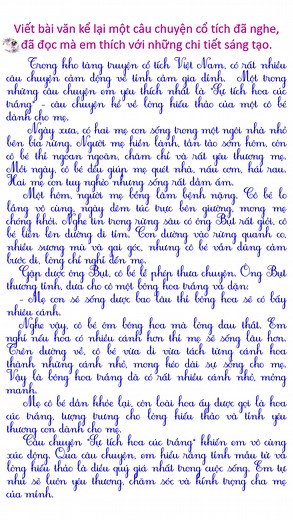 Viết bài văn kể lại một câu chuyện cổ tích đã nghe,
đã đọc mà em thích với những chi tiết sáng tạo.
Trong kho tàng truyện cổ tích Việt Nam, có rất nhiều
câu chuyện cảm động về tình cảm gia đình. Một trong
những câu chuyện em yêu thích nhất là "Sự tích hoa cúc
trắng" - câu chuyện kể về lòng hiếu thảo của một cô bé
dành cho mẹ.
Ngày xưa, có hai mẹ con sống trong một ngôi nhà nhỏ
bên bìa rừng. Người mẹ hiền lành, tần tảo sớm hôm, còn
cô bé thì ngoan ngoãn, chăm chỉ và rất yêu thương mẹ.
Mỗi ngày, cô bé đều giúp mẹ quét nhà, nấu cơm, hái rau.
Hai mẹ con tuy nghèo nhưng sống rất đầm ấm.
Một hôm, người mẹ bỗng lâm bệnh nặng. Cô bé lo
lắng vô cùng, ngày đêm túc trực bên giường, mong mẹ
chóng khỏi. Nghe tin trong rừng sâu có ông Bụt rất giỏi, cô
bé liền lên đường đi tìm. Con đường vào rừng quanh co,
nhiều sương mù và gai góc, nhưng cô bé vẫn dũng cảm
bước đi, lòng chỉ nghĩ đến mẹ.
Gặp được ông Bụt, cô bé lễ phép thưa chuyện. Ông Bụt
thương tình, đưa cho cô một bông hoa trắng và dặn:
- Mẹ con sẽ sống được bao lâu thì bông hoa sẽ có bấy
nhiêu cánh.
Nghe vậy, cô bé ôm bông hoa mà lòng đau thắt. Em
nghĩ nếu hoa có nhiều cánh hơn thì mẹ sẽ sống lâu hơn.
Trên đường về, cô bé vừa đi vừa tách từng cánh hoa
thành những cánh nhỏ, mong kéo dài sự sống cho mẹ.
Vậy là bông hoa trắng đã có rất nhiều cánh nhỏ, mỏng
manh.
Mẹ cô bé dần khỏe lại, còn loài hoa ấy được gọi là hoa
cúc trắng, tượng trưng cho lòng hiếu thảo và tình yêu
thương con dành cho mẹ.
Câu chuyện "Sự tích hoa cúc trắng" khiến em vô cùng
xúc động. Qua câu chuyện, em hiểu rằng tình mẫu tử và
lòng hiếu thảo là điều quý giá nhất trong cuộc sống. Em tự
nhủ sẽ luôn yêu thương, chăm sóc và kính trọng cha mẹ
của mình.